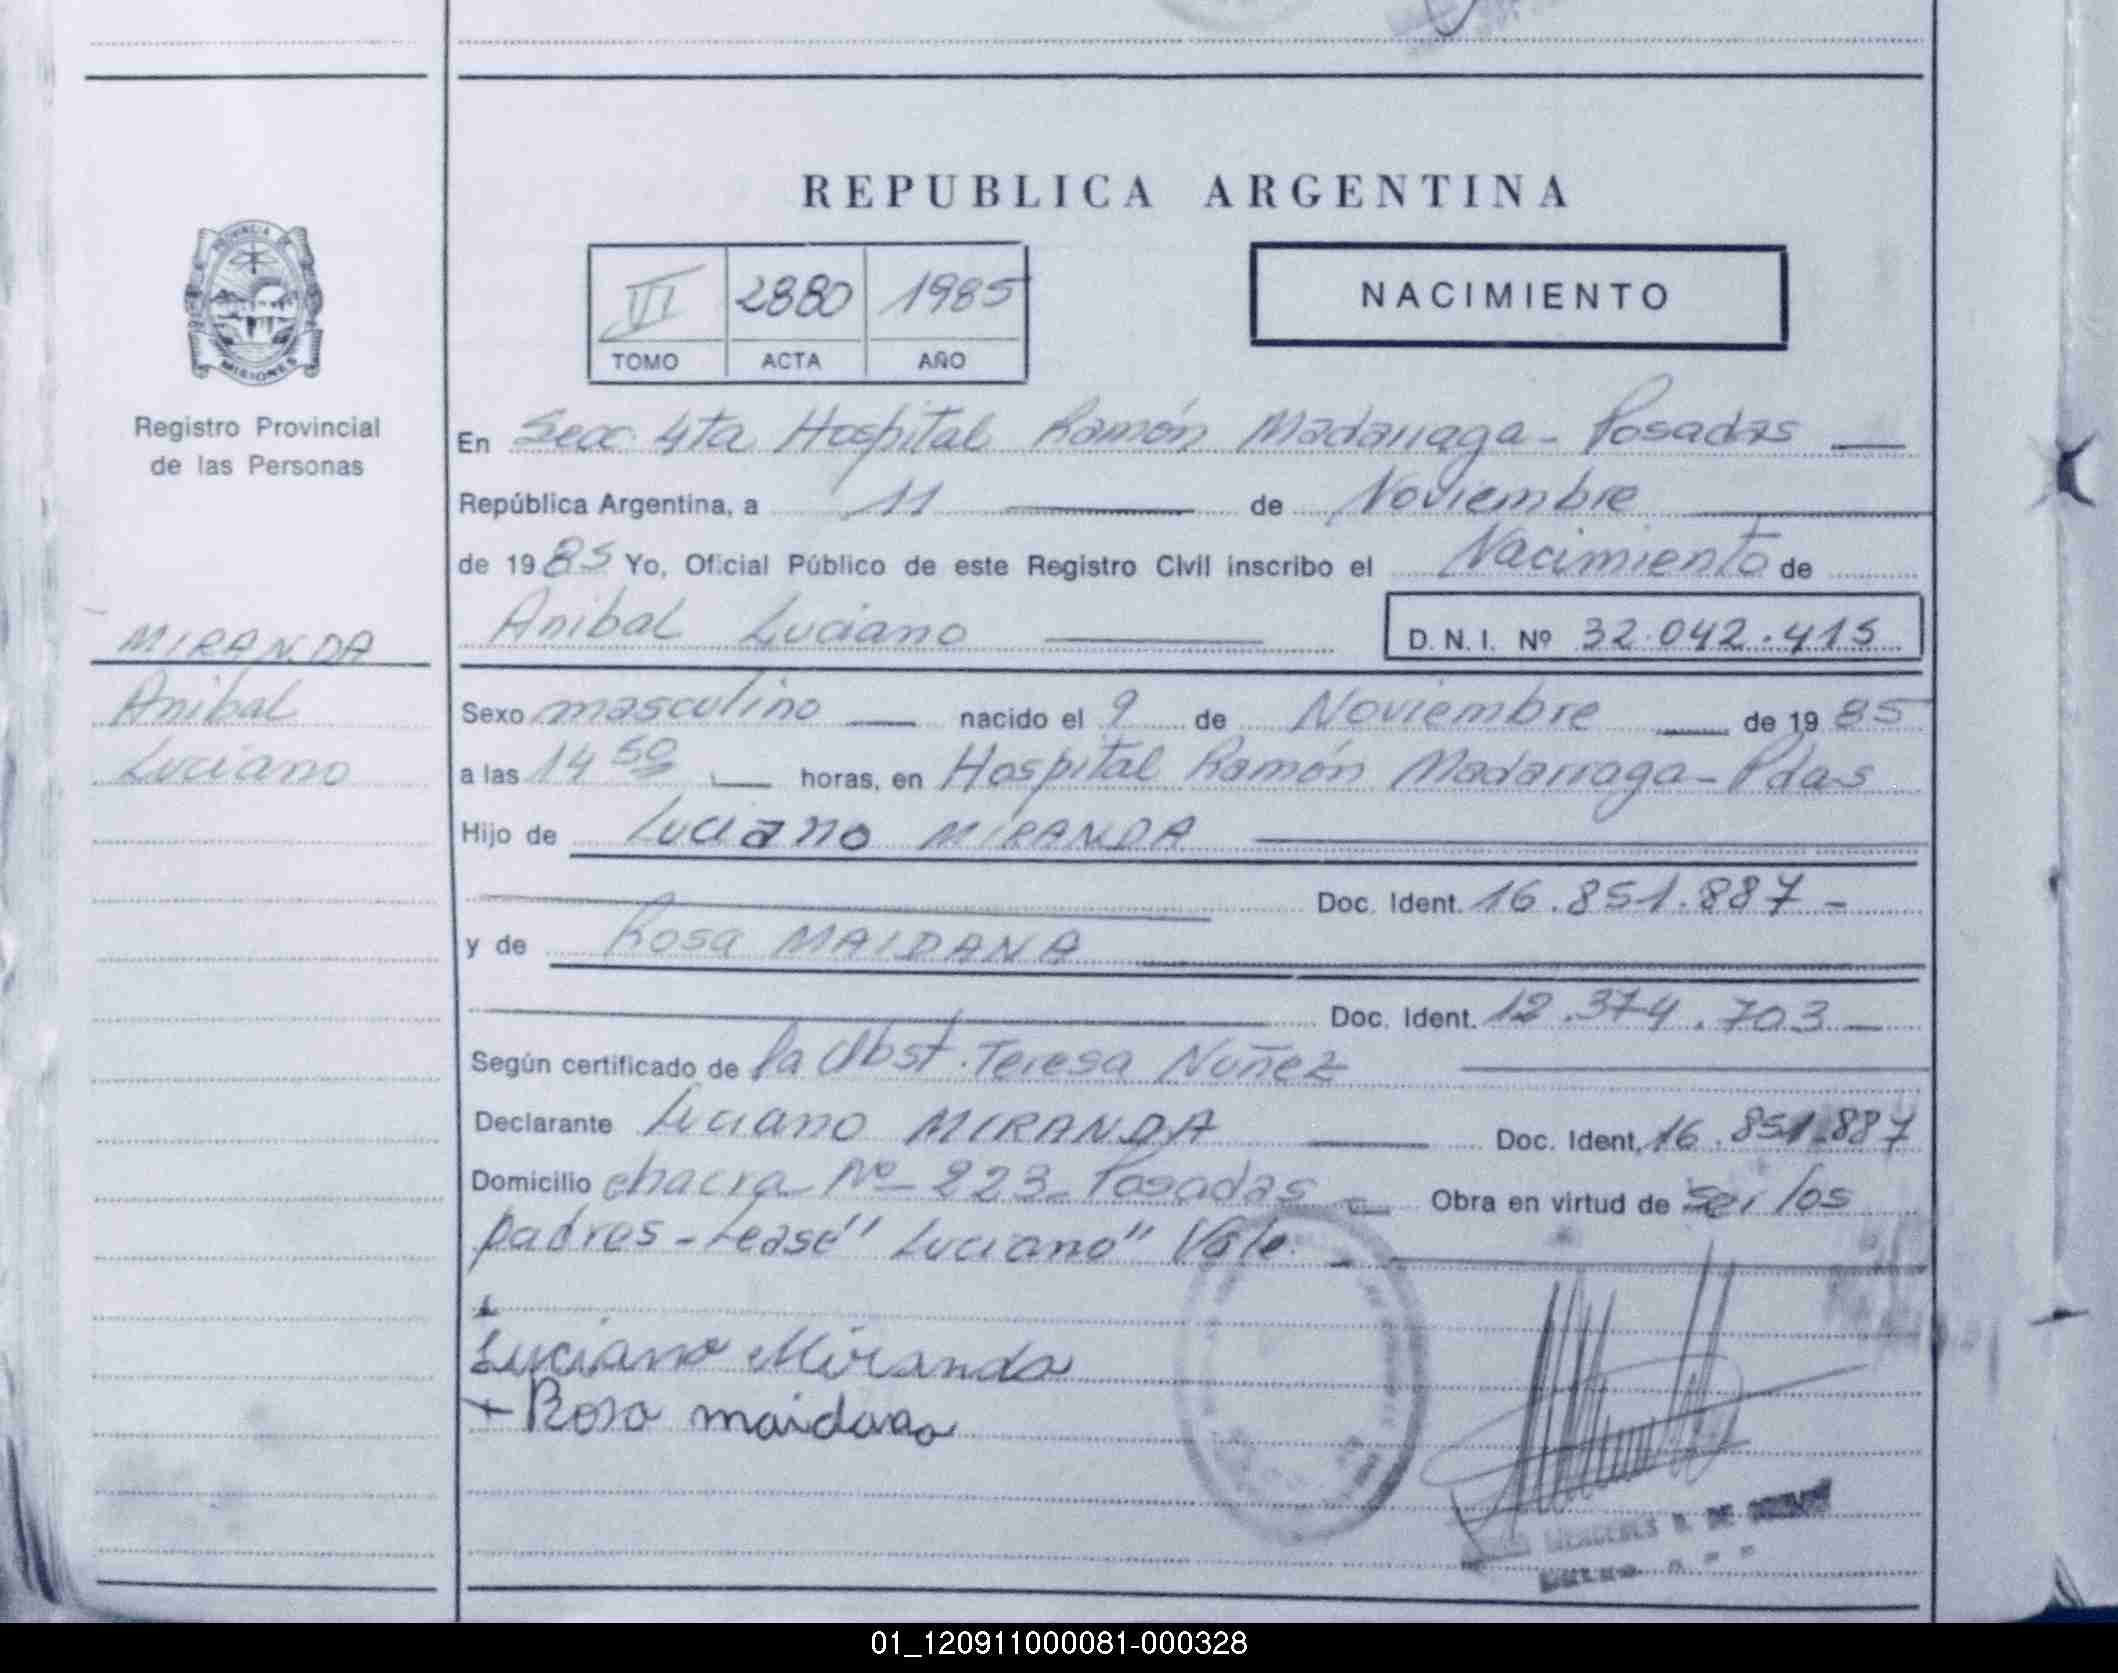 REPUBLICA ARGENTINA
PROVINCIA DE
MISIONES
Registro Provincial
de las Personas
VII 2880 1985
TOMO ACTA AÑO
NACIMIENTO
En Secc. 4ta Hospital Ramón Madariaga - Posadas
República Argentina, a 11 de Noviembre
de 1985 Yo, Oficial Público de este Registro Civil inscribo el Nacimiento de
Anibal Luciano D. N. I. Nº 32.042.415
MIRANDA
Anibal
Luciano
Sexo masculino nacido el 9 de Noviembre de 1985
a las 14 50 horas, en Hospital Ramón Madarriaga - Pdas
Hijo de Luciano MIRANDA
Doc. Ident. 16.851.887 -
y de Rosa MAIDANA
Doc. Ident. 12.374.703 -
Según certificado de la Obst. Teresa Nuñez
Declarante Luciano MIRANDA Doc. Ident. 16.851.887
Domicilio chacra Nº - 223 - Posadas Obra en virtud de ser los
padres - Lease "Luciano" Vale.
Luciano Miranda
+ Rosa maidana
01_120911000081-000328